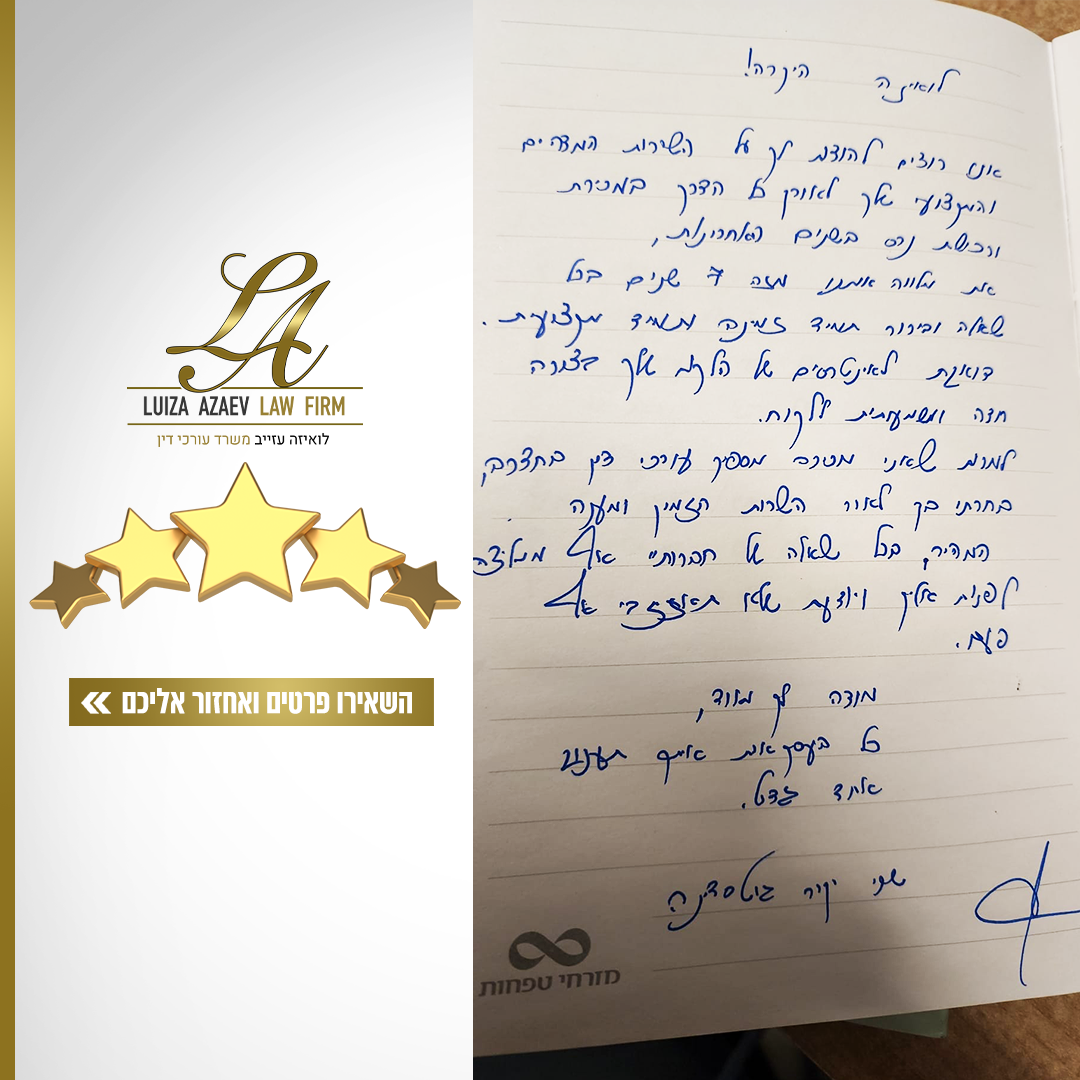 LA
LUIZA AZAEV LAW FIRM
לואיזה עזייב משרד עורכי דין
השאירו פרטים ואחזור אליכם »
לואיזה היקרה!
אנו רוצים להודות לך על השירות המדהים
והמקצועי שלך לאורך כל הדרך במכירת
ורכישת נכס בשנים האחרונות,
את מלווה אותנו מזה 7 שנים בכל
שאלה ובירור תמיד זמינה ותמיד מקצועית.
דואגת לאינטרסים של הלקוח שלך בצורה
חדה ומשמעותית ללקוח.
למרות שאני מכירה מספיק עורכי דין
בחרתי בך לאור השרות הזמין ומענה
המהיר, בכל שאלה של חברותיי אני ממליצה
לפנות אליך ויודעת שלא תאכזבי אף
פעם.
מודה לך מאוד,
כל בעסקאות איתך תענוג
אחד גדול.
יקיר
מזרחי טפחות